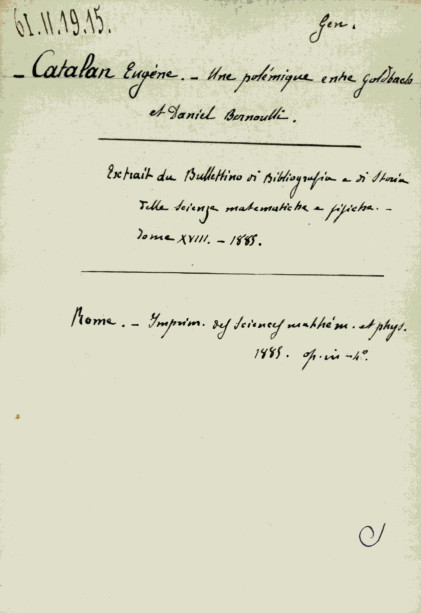 61.II.19.15.
Gen.
- Catalan Eugène. - Une polémique entre Goldbach
et Daniel Bernoulli.
Extrait du Bullettino di Bibliografia e di Storia
delle Scienze matematiche e fisiche. -
Tome XVIII. - 1885.
Rome. - Imprim. des Sciences mathém. et phys.
1885. op. in-4°.